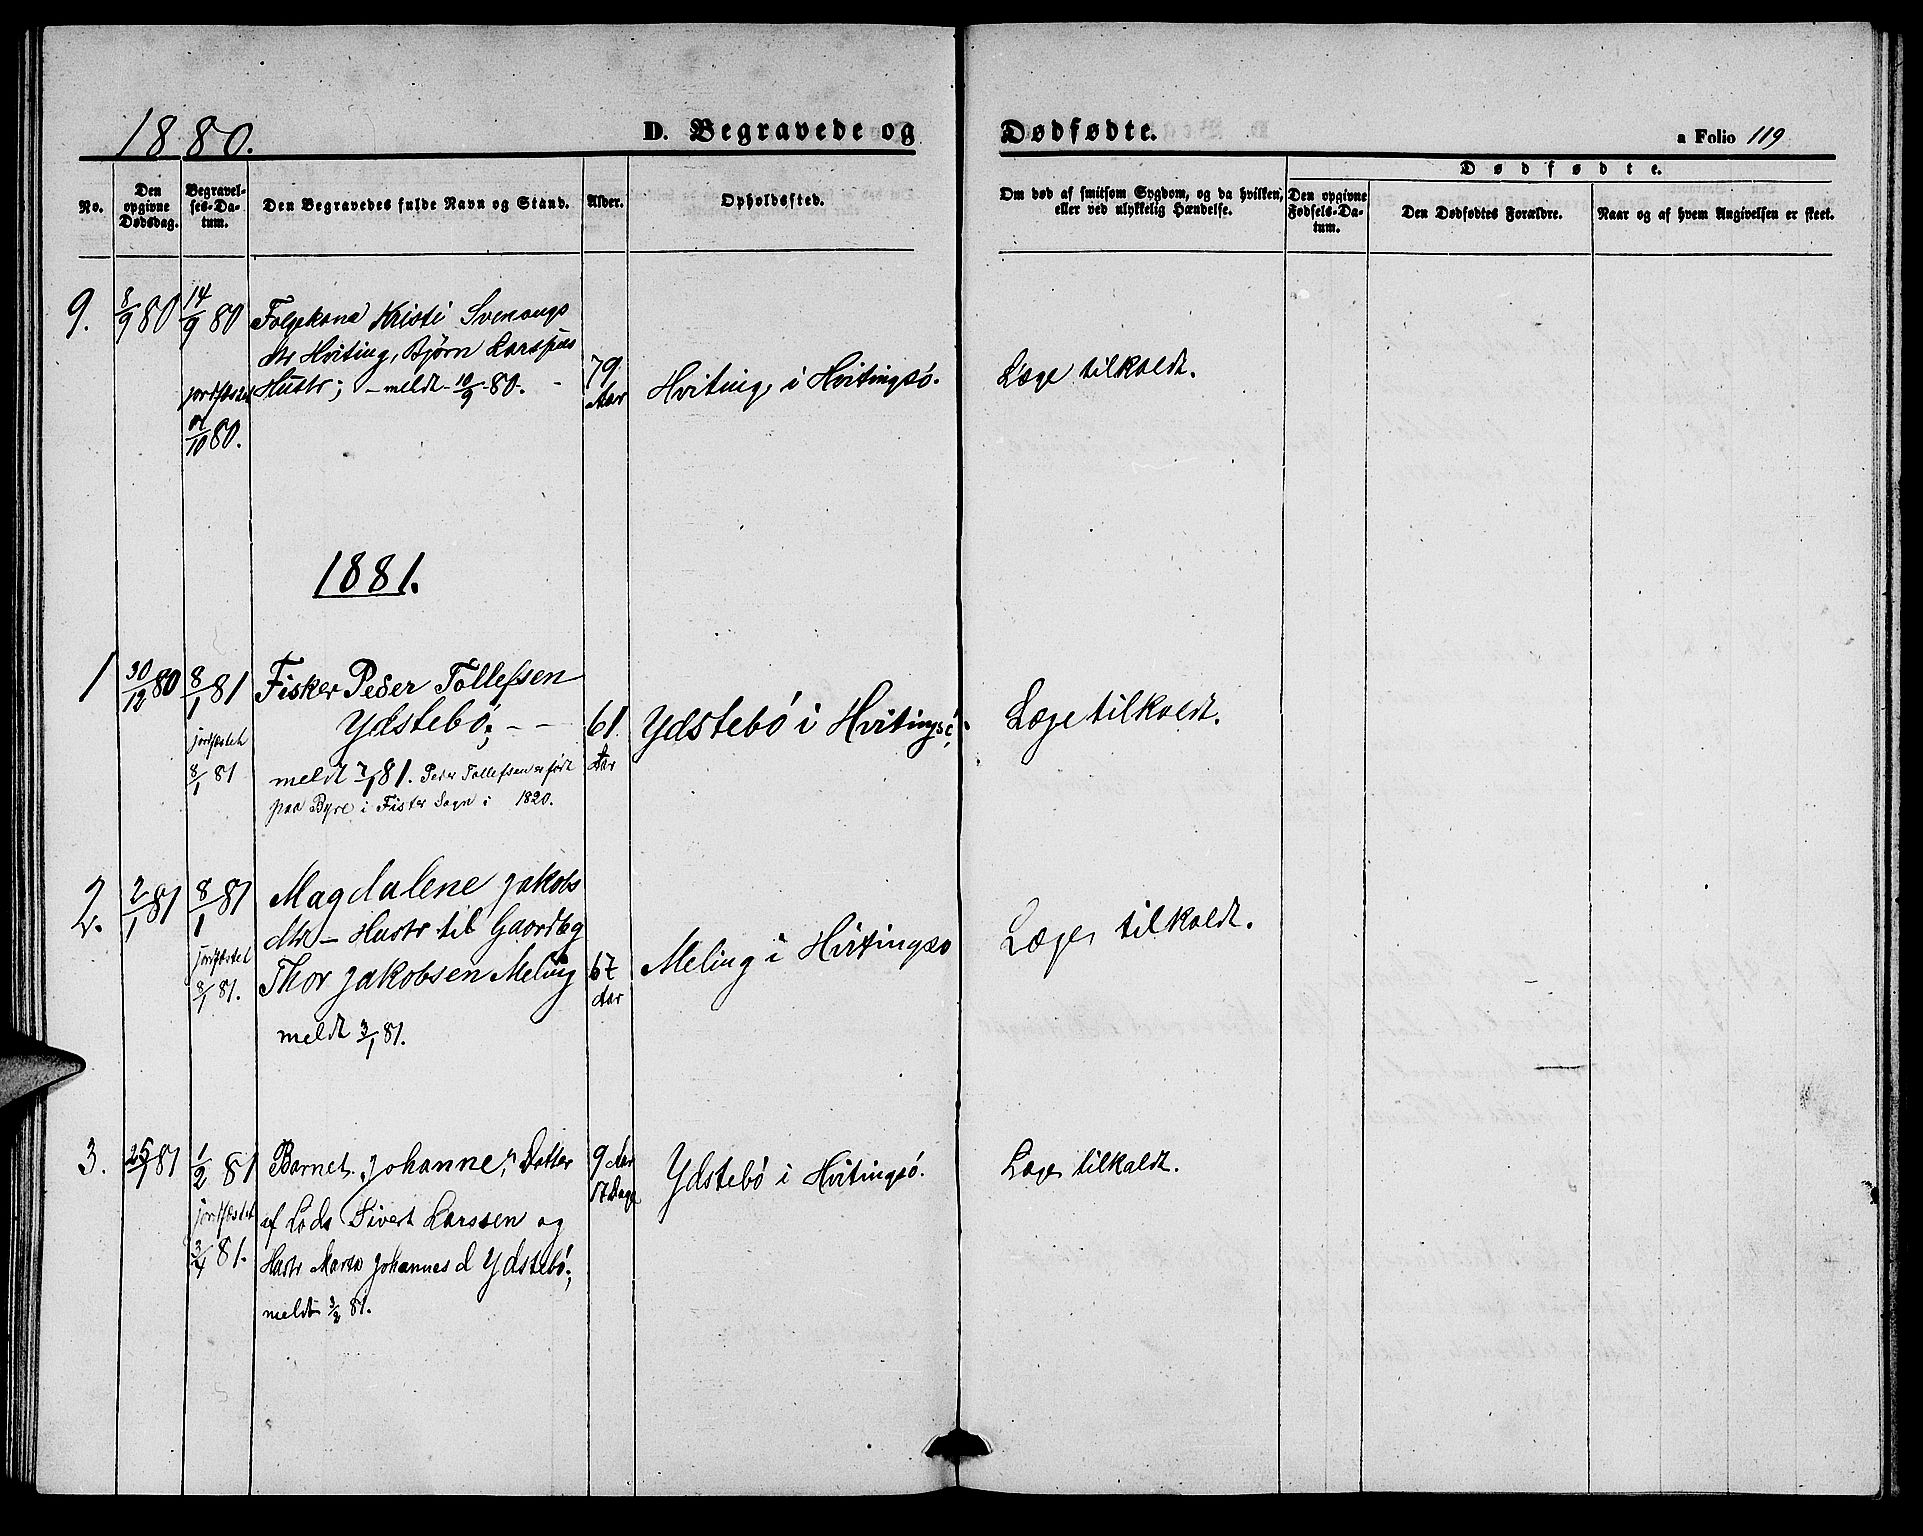 1880.
D. Begravede og Dødfødte.
a Folio 119
No.
Den opgivne Dødsdag.
Begravelses-Datum.
Den Begravedes fulde Navn og Stand.
Alder.
Opholdssted.
Om død af smitsom Sygdom, og da hvilken, eller ved ulykkelig Hændelse.
Dødfødte.
Den opgivne Fødsels-Datum.
Den Dødfødtes Forældre.
Naar og af hvem Angivelsen er skeet.
9. 8/9 80 14/9 80 Folgekone Kristi
dtr Hviting, Bjørn
Hustr; – meldt 10/9 80. –
jordfæstet
/10 80.
79 Aar
Hviting i Hvitingsö.
Læge tilkaldt.
1881.
1 30/12 80 8/1 81 Fisker Peder Tollefsen
Ydstebö; – –
meldt 7/1 81. Peder Tollefsen er født
paa Byre i Fister Sogn i 1820.
jordfæstet
8/1 81
61 Aar
Ydstebö i Hvitingsö.
Læge tilkaldt.
2. 2/1 81 8/1 81 Magdalene Jakobs
dtr – Hustr til Gaardbg
Thor Jakobsen Meling
meldt 3/1 81.
jordfæstet
8/1 81.
67 Aar
Meling i Hvitingsö
Læge tilkaldt.
3. 25/1 81 1/2 81 Barnet „Johanne", Datter
af Lods Sivert Larssen og
Hustr Marta Johannesd Ydstebö;
meldt 3/2 81.
jordfæstet
3/4 81.
9 Aar
17 Dage
Ydstebö i Hvitingsö.
Læge tilkaldt.